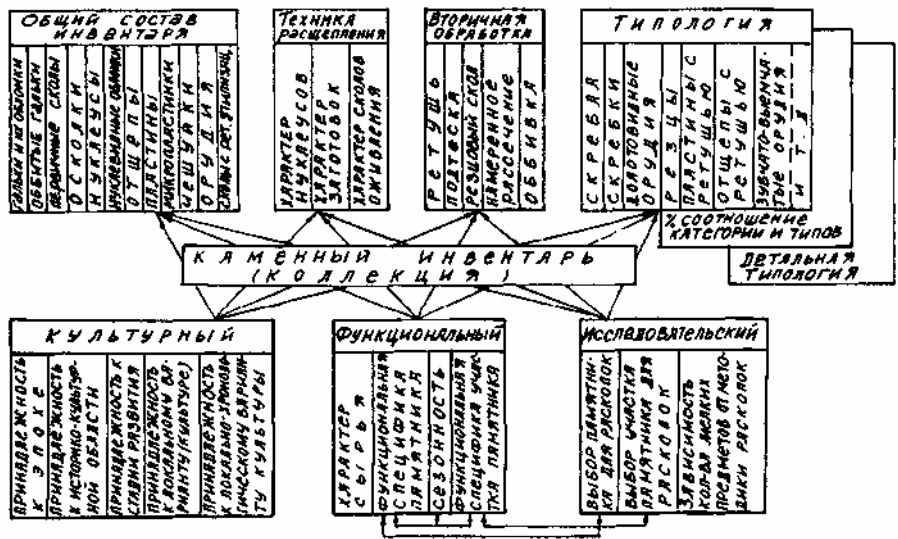 ОБЩИЙ СОСТАВ
ИНВЕНТАРЯ
ГАЛЬКИ И ИХ ОБЛОМКИ
ОББИТЫЕ ГАЛЬКИ
ПЕРВИЧНЫЕ СКОЛЫ
ОСКОЛКИ
НУКЛЕУСЫ
НУКЛЕВИДНЫЕ ОБЛОМКИ
ОТЩЕПЫ
ПЛАСТИНЫ
МИКРОПЛАСТИНКИ
ЧЕШУЙКИ
ОРУДИЯ
СКОЛЫ С РЕТ.
ТЕХНИКА
РАСЩЕПЛЕНИЯ
ХАРАКТЕР
НУКЛЕУСОВ
ХАРАКТЕР
ЗАГОТОВОК
ХАРАКТЕР СКОЛОВ
ОЖИВЛЕНИЯ
ВТОРИЧНАЯ
ОБРАБОТКА
РЕТУШЬ
ПОДТЕСКА
РЕЗЦОВЫЙ СКОЛ
НАМЕРЕННОЕ
РАССЕЧЕНИЕ
ОББИВКА
ТИПОЛОГИЯ
СКРЕБЛА
СКРЕБКИ
ДОЛОТОВИДНЫЕ
ОРУДИЯ
РЕЗЦЫ
ПЛАСТИНЫ С
РЕТУШЬЮ
ОТЩЕПЫ С
РЕТУШЬЮ
ЗУБЧАТО-ВЫЕМЧА-
ТЫЕ ОРУДИЯ
И Т.Д
% СООТНОШЕНИЕ
КАТЕГОРИИ И ТИПОВ
ДЕТАЛЬНАЯ
ТИПОЛОГИЯ
КАМЕННЫЙ ИНВЕНТАРЬ
(КОЛЛЕКЦИЯ)
КУЛЬТУРНЫЙ
ПРИНАДЛЕЖНОСТЬ
К ЭПОХЕ
ПРИНАДЛЕЖНОСТЬ
К ИСТОРИКО-КУЛЬТУР-
НОЙ ОБЛАСТИ
ПРИНАДЛЕЖНОСТЬ К
СТАДИИ РАЗВИТИЯ
ПРИНАДЛЕЖНОСТЬ
К ЛОКАЛЬНОМУ ВА-
РИАНТУ (КУЛЬТУРЕ)
ПРИНАДЛЕЖНОСТЬ
К ЛОКАЛЬНО-ХРОНОЛО-
ГИЧЕСКОМУ ВАРИАН-
ТУ КУЛЬТУРЫ
ФУНКЦИОНАЛЬНЫЙ
ХАРАКТЕР
СЫРЬЯ
ФУНКЦИОНАЛЬНАЯ
СПЕЦИФИКА
ПАМЯТНИКА
СЕЗОННОСТЬ
ФУНКЦИОНАЛЬНАЯ
СПЕЦИФИКА УЧАС-
ТКА ПАМЯТНИКА
ИССЛЕДОВАТЕЛЬСКИЙ
ВЫБОР ПАМЯТНИ-
КА ДЛЯ РАСКОПОК
ВЫБОР УЧАСТКА
ПАМЯТНИКА ДЛЯ
РАСКОПОК
ЗАВИСИМОСТЬ
КОЛ-ВА МЕЛКИХ
ПРЕДМЕТОВ ОТ МЕТО-
ДИКИ РАСКОПОК